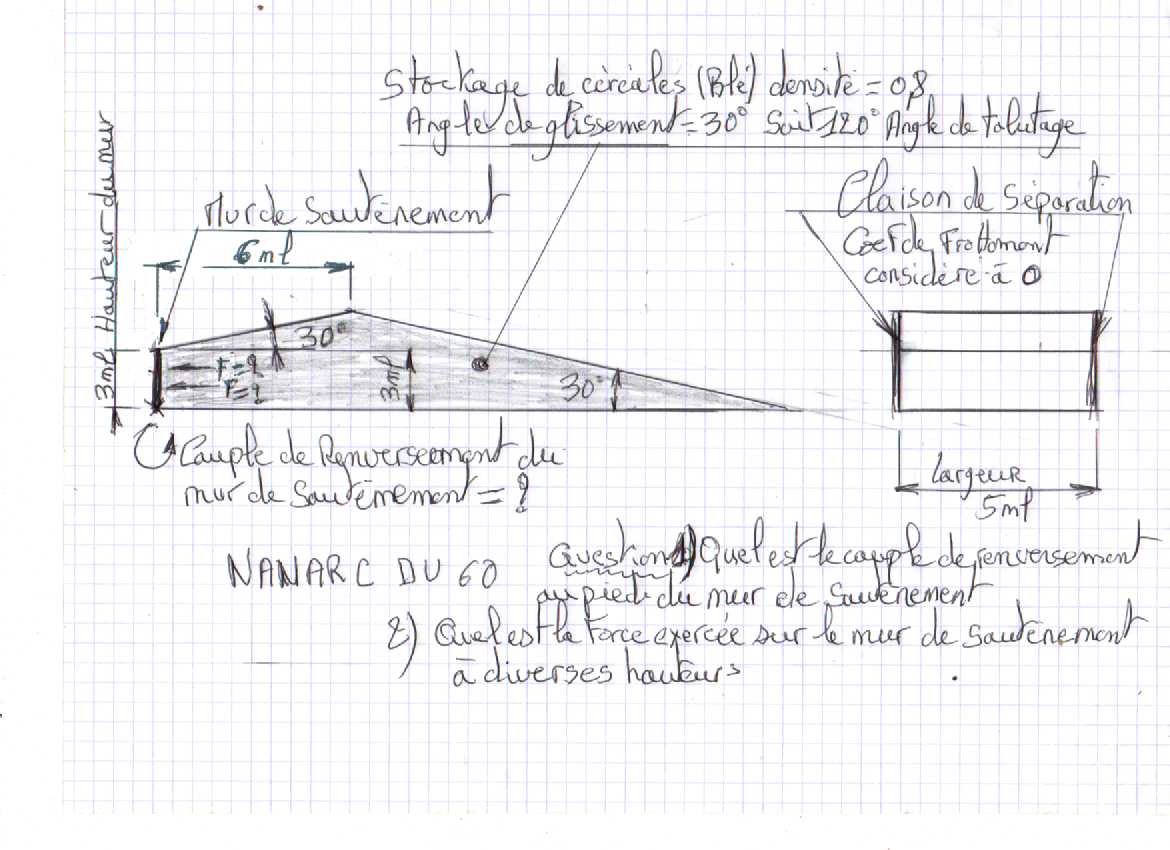 Stockage de céréales (Blé) densité = 0,8
Angle de glissement = 30° Soit 120° Angle de talutage
Mur de Soutènement
6 ml
3ml Hauteur du mur
30°
F=?
F=?
3ml
30°
Claison de Séparation
Coef de Frottement
considère à 0
Couple de Renversement du
mur de Soutènement = ?
largeur
5ml
NANARC DU 60
Question 1) Quel est le couple de renversement
au pied du mur de Soutènement
2) Quel est la Force exercée sur le mur de Soutènement
à diverses hauteurs